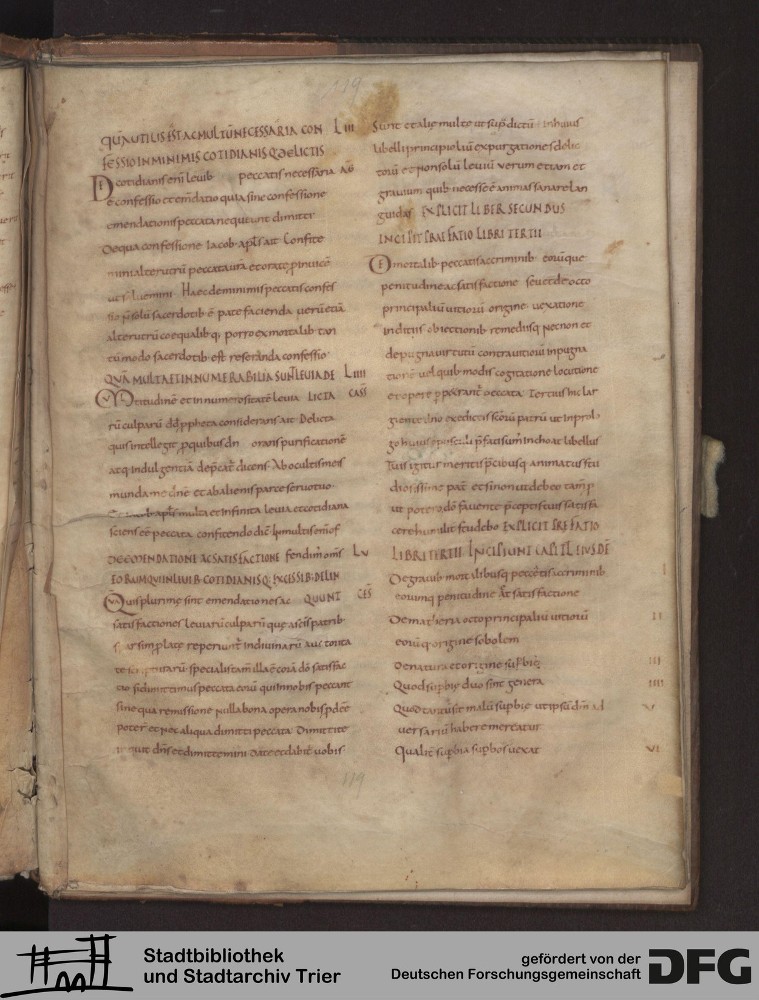 119
QUA UTILIS EST AC MULTŪ NECESSARIA CON LIII
FESSIO IN MINIMIS COTIDIANISQ; DELICTIS
De cotidianis enī levib peccatis necessaria
e confessio et emdatio quia sine confessione
emendationis peccata nequeunt dimitti
De qua confessione Iacob apls ait Confite
mini alterutrū peccata vrā et orate p invicē
ut salvemini Haec de minimis peccatis confes
sio ñ solū sacerdotib ē pate facienda verū etiā
alterutrū coequalibq; porro ex mortalib
tū modo sacerdotib est reseranda confessio
QUĀ MULTA ET INNUMERABILIA SUNT LEVIA DE LIIII
Multitudinē et innumerositatē levia LICTA
rū culparū dd ppheta considerans ait Delicta
quis intellegit p quibus dn orans purificationē
atq indulgentiā depcat dicens Ab occultis meis
munda me dne et ab alienis parce servo tuo
apls multa et infinita levia et cotidiana
sciens eē peccata confitendo dic In multis em of
DE EMENDATIONE AC SATISFACTIONE fendim oms LV
EORUM QUI IN LEVIB COTIDIANISQ; EXCESSIB; DELIN
Quis plurime sint emendationes ac QUUNT
satisfactiones leviarū culparū que a scis patrib
reperiunt In divinarū
scripturarū specialis tam illa ē dō satisfac
tio si dimittimus peccata eorū qui in nobis peccant
sine qua remissione nulla bona opera nobis pdee
poter et nec aliqua dimitti peccata Dimittite
inquit dns et dimittemini date et dabit vobis
Sunt et alie multe ut sup dictū in huius
libelli principio liū expurgationes delic
torū et non solū leviū verum etiam et
gravium quib necesse ē animas sanare lan
guidas EXPLICIT LIBER SECUNDUS
INCIPIT PRAEFATIO LIBRI TERTII
De mortalib peccatis ac criminib eorūque
penitudine ac satisfactione seu et de octo
principaliū vitiorū origine vexatione
inditiis obiectionib remediisq necnon et
de pugna virtutū contra vitiorū inpugna
tionē vel quib modis cogitatione locutione
et opere ppetrant peccata Tertius hic lar
giente dno ex edictis scorū patrū ut in prolo
go huius opusculi pfati sum inchoat libellus
Tuis igitur meritis pcibusq animatus
pat et si non ut debeo tam p
ut potero dō favente pceptis tuis satisfa
cere humilit studebo EXPLICIT PREFATIO
LIBRI TERTII INCIPIUNT CAPITL EIUSDE
De gravib mortalibusq peccatis ac criminib I
eorumq penitudine et satisfactione
De materia octo principaliū vitiorū II
eorūq origine sobolem
De natura et origine supbie III
Quod supbie duo sint genera IIII
Quod tantū sit malū supbie ut ipsū dm ad V
versariū habere mereatur
Qualit supbia supbos vexat VI
119
Stadtbibliothek
und Stadtarchiv Trier
gefördert von der
Deutschen Forschungsgemeinschaft
DFG